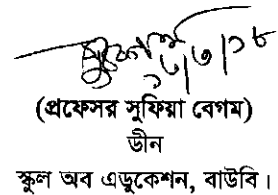 ১৮/৩/১৮
(প্রফেসর সুফিয়া বেগম)
ডীন
স্কুল অব এডুকেশন, বাউবি।